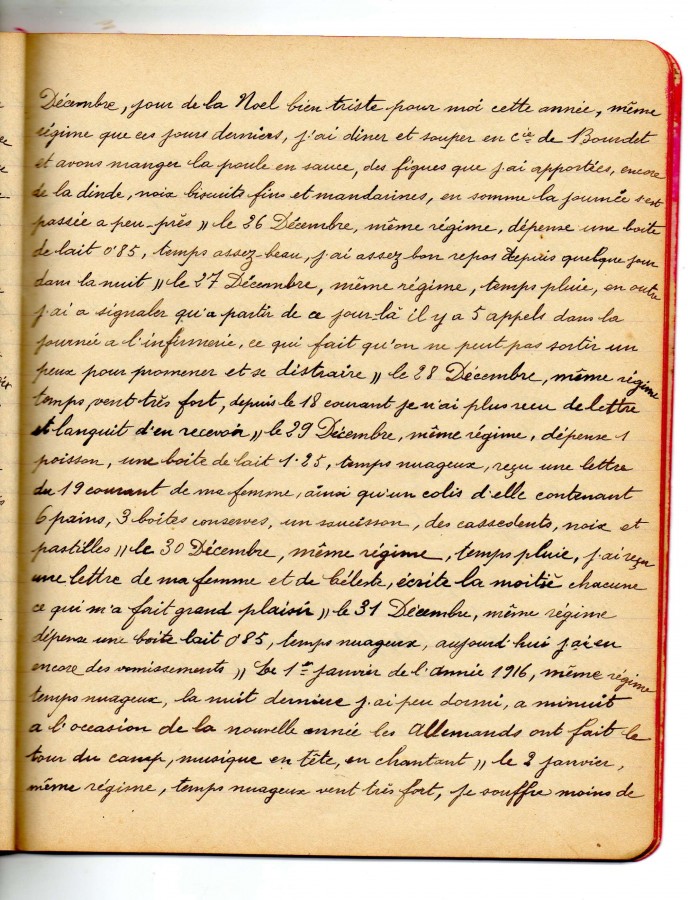 Décembre, jour de la Noel bien triste pour moi cette année, même
régime que ces jours derniers, j'ai diner et souper en Cie de Bourdet
et avons manger la poule en sauce, des figues que j'ai apportées, encore
de la dinde, noix biscuits fins et mandarines, en somme la journée s'est
passée a peu-près,, le 26 Décembre, même régime, dépense une boite
de lait 0'85, temps assez-beau, j'ai assez-bon repos depuis quelque jour
dans la nuit,, le 27 Décembre, même régime, temps pluie, en outre
j'ai a signaler qu'a partir de ce jour-là il y a 5 appels dans la
journée a l'infirmerie, ce qui fait qu'on ne peut pas sortir un
peux pour promener et se distraire,, le 28 Décembre, même régime
temps vent très fort, depuis le 18 courant je n'ai plus recu de lettre
et languit d'en recevoir,, le 29 Décembre, même régime, dépense 1
poisson, une boite de lait 1.25, temps nuageux, reçu une lettre
du 19 courant de ma femme, ainsi qu'un colis d'elle contenant
6 pains, 3 boites conserves, un saucisson, des cassedents, noix et
pastilles,, le 30 Décembre, même régime, temps pluie, j'ai reçu
une lettre de ma femme et de Céleste, écrite la moitié chacune
ce qui m'a fait grand plaisir,, le 31 Décembre, même régime
dépense une boite lait 0'85, temps nuageux, aujourd'hui j'ai eu
encore des vomissements,, Le 1er janvier de l'année 1916, même régime
temps nuageux, la nuit dernière j'ai peu dormi, a minuit
a l'occasion de la nouvelle année les Allemands ont fait le
tour du camp, musique en tête, en chantant,, le 2 janvier,
même régime, temps nuageux vent très fort, je souffre moins de